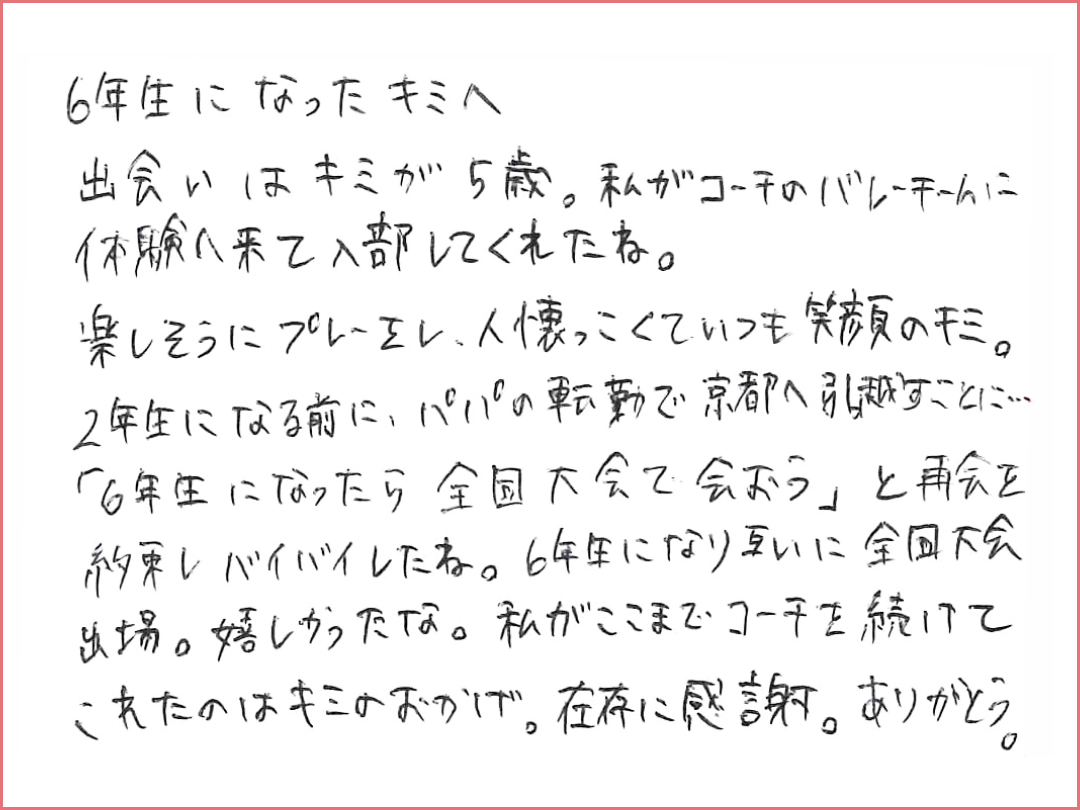 6年生になったキミへ
出会いはキミが5歳。私がコーチのバレーチームに
体験へ来て入部してくれたね。
楽しそうにプレーをし、人懐っこくていつも笑顔のキミ。
2年生になる前に、パパの転勤で京都へ引越すことに…
「6年生になったら全国大会で会おう」と再会を
約束しバイバイしたね。6年生になり互いに全国大会
出場。嬉しかったな。私がここまでコーチを続けて
これたのはキミのおかげ。在存に感謝。ありがとう。